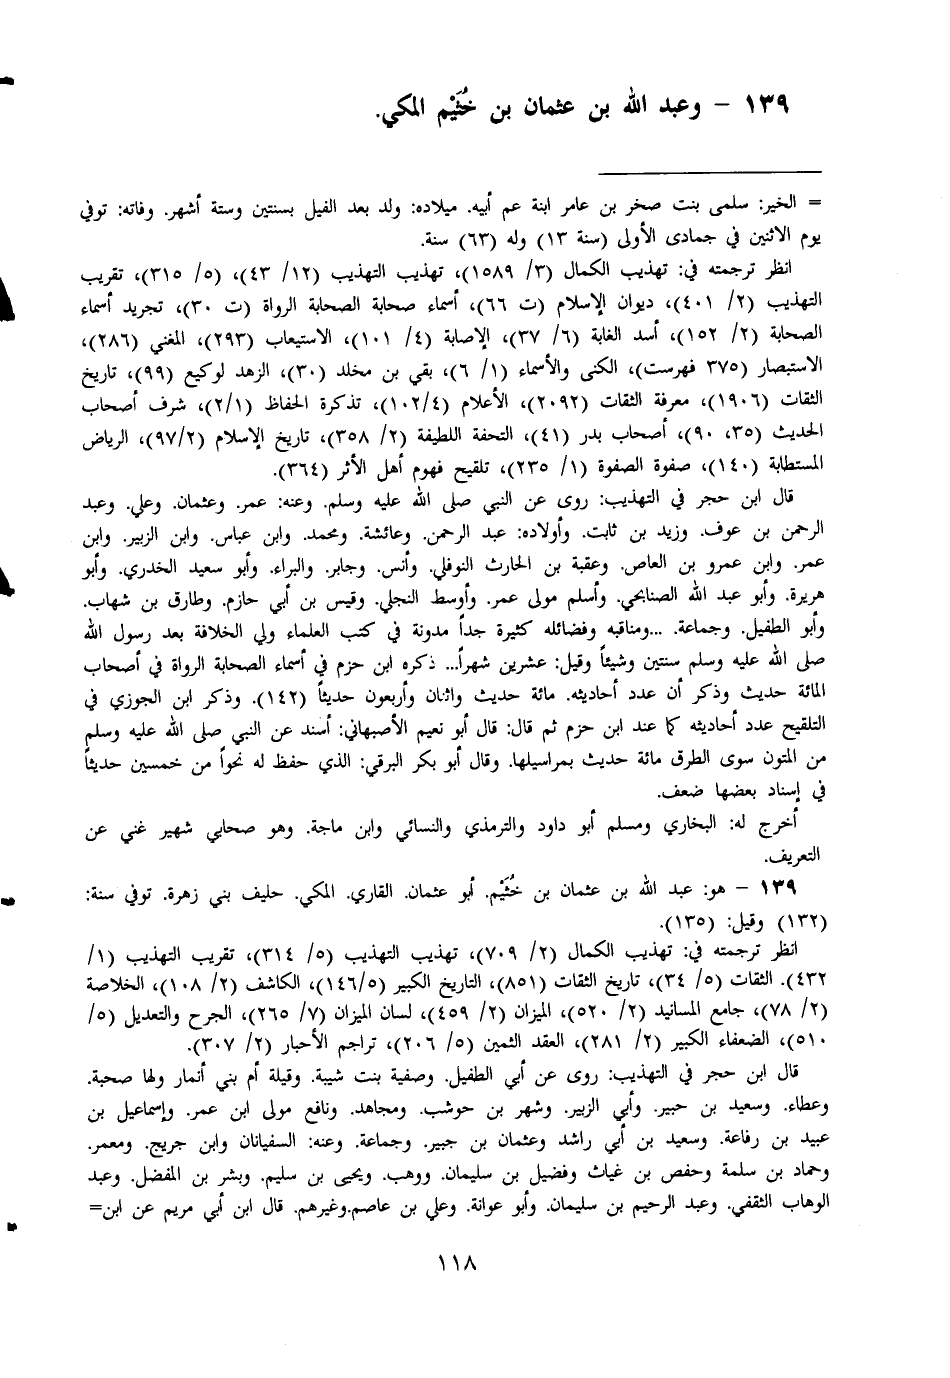 ١٣٩ – وعبد الله بن عثمان بن خُثَيْم المكي.
= الخير: سلمى بنت صخر بن عامر ابنة عم أبيه. ميلاده: ولد بعد الفيل بسنتين وستة أشهر. وفاته: توفي
يوم الاثنين في جمادى الأولى (سنة ١٣) وله (٦٣) سنة.
انظر ترجمته في: تهذيب الكمال (٣/ ١٥٨٩)، تهذيب التهذيب (١٢/ ٤٣)، (٥/ ٣١٥)، تقريب
التهذيب (٢/ ٤٠١)، ديوان الإسلام (ت ٦٦)، أسماء صحابة الصحابة الرواة (ت ٣٠)، تجريد أسماء
الصحابة (٢/ ١٥٢)، أسد الغابة (٦/ ٣٧)، الإصابة (٤/ ١٠١)، الاستيعاب (٢٩٣)، المغني (٢٨٦)،
الاستبصار (٣٧٥ فهرست)، الكنى والأسماء (١/ ٦)، بقي بن مخلد (٣٠)، الزهد لوكيع (٩٩)، تاريخ
الثقات (١٩٠٦)، معرفة الثقات (٢٠٩٢)، الأعلام (١٠٢/٤)، تذكرة الحفاظ (٢/١)، شرف أصحاب
الحديث (٣٥، ٩٠)، أصحاب بدر (٤١)، التحفة اللطيفة (٢/ ٣٥٨)، تاريخ الإسلام (٩٧/٢)، الرياض
المستطابة (١٤٠)، صفوة الصفوة (١/ ٢٣٥)، تلقيح فهوم أهل الأثر (٣٦٤).
قال ابن حجر في التهذيب: روى عن النبي صلى الله عليه وسلم. وعنه: عمر. وعثمان. وعلي. وعبد
الرحمن بن عوف. وزيد بن ثابت. وأولاده: عبد الرحمن. وعائشة. ومحمد. وابن عباس. وابن الزبير. وابن
عمر. وابن عمرو بن العاص. وعقبة بن الحارث النوفلي. وأنس. وجابر. والبراء. وأبو سعيد الخدري. وأبو
هريرة. وأبو عبد الله الصنابحي. وأسلم مولى عمر. وأوسط النجلي. وقيس بن أبي حازم. وطارق بن شهاب.
وأبو الطفيل. وجماعة. ...ومناقبه وفضائله كثيرة جداً مدونة في كتب العلماء ولي الخلافة بعد رسول الله
صلى الله عليه وسلم سنتين وشيئاً وقيل: عشرين شهراً... ذكره ابن حزم في أسماء الصحابة الرواة في أصحاب
المائة حديث وذكر أن عدد أحاديثه. مائة حديث واثنان وأربعون حديثاً (١٤٢). وذكر ابن الجوزي في
التلقيح عدد أحاديثه كما عند ابن حزم ثم قال: قال أبو نعيم الأصبهاني: أسند عن النبي صلى الله عليه وسلم
من المتون سوى الطرق مائة حديث بمراسيلها. وقال أبو بكر البرقي: الذي حفظ له نحواً من خمسين حديثاً
في إسناد بعضها ضعف.
أخرج له: البخاري ومسلم أبو داود والترمذي والنسائي وابن ماجة. وهو صحابي شهير غني عن
التعريف.
١٣٩ – هو: عبد الله بن عثمان بن خُثَيْم. أبو عثمان. القاري. المكي. حليف بني زهرة. توفي سنة:
(١٣٢) وقيل: (١٣٥).
انظر ترجمته في: تهذيب الكمال (٢/ ٧٠٩)، تهذيب التهذيب (٥/ ٣١٤)، تقريب التهذيب (١/
٤٣٢). الثقات (٥/ ٣٤)، تاريخ الثقات (٨٥١)، التاريخ الكبير (١٤٦/٥)، الكاشف (٢/ ١٠٨)، الخلاصة
(٢/ ٧٨)، جامع المسانيد (٢/ ٥٢٠)، الميزان (٢/ ٤٥٩)، لسان الميزان (٧/ ٢٦٥)، الجرح والتعديل (٥/
٥١٠)، الضعفاء الكبير (٢/ ٢٨١)، العقد الثمين (٥/ ٢٠٦)، تراجم الأحبار (٢/ ٣٠٧).
قال ابن حجر في التهذيب: روى عن أبي الطفيل. وصفية بنت شيبة. وقيلة أم بني أنمار ولها صحبة.
وعطاء. وسعيد بن جبير. وأبي الزبير. وشهر بن حوشب. ومجاهد. ونافع مولى ابن عمر. وإسماعيل بن
عبيد بن رفاعة. وسعيد بن أبي راشد وعثمان بن جبير. وجماعة. وعنه: السفيانان وابن جريج. ومعمر.
وحماد بن سلمة وحفص بن غياث وفضيل بن سليمان. ووهب. ويحيى بن سليم. وبشر بن المفضل. وعبد
الوهاب الثقفي. وعبد الرحيم بن سليمان. وأبو عوانة. وعلي بن عاصم.وغيرهم. قال ابن أبي مريم عن ابن=
١١٨